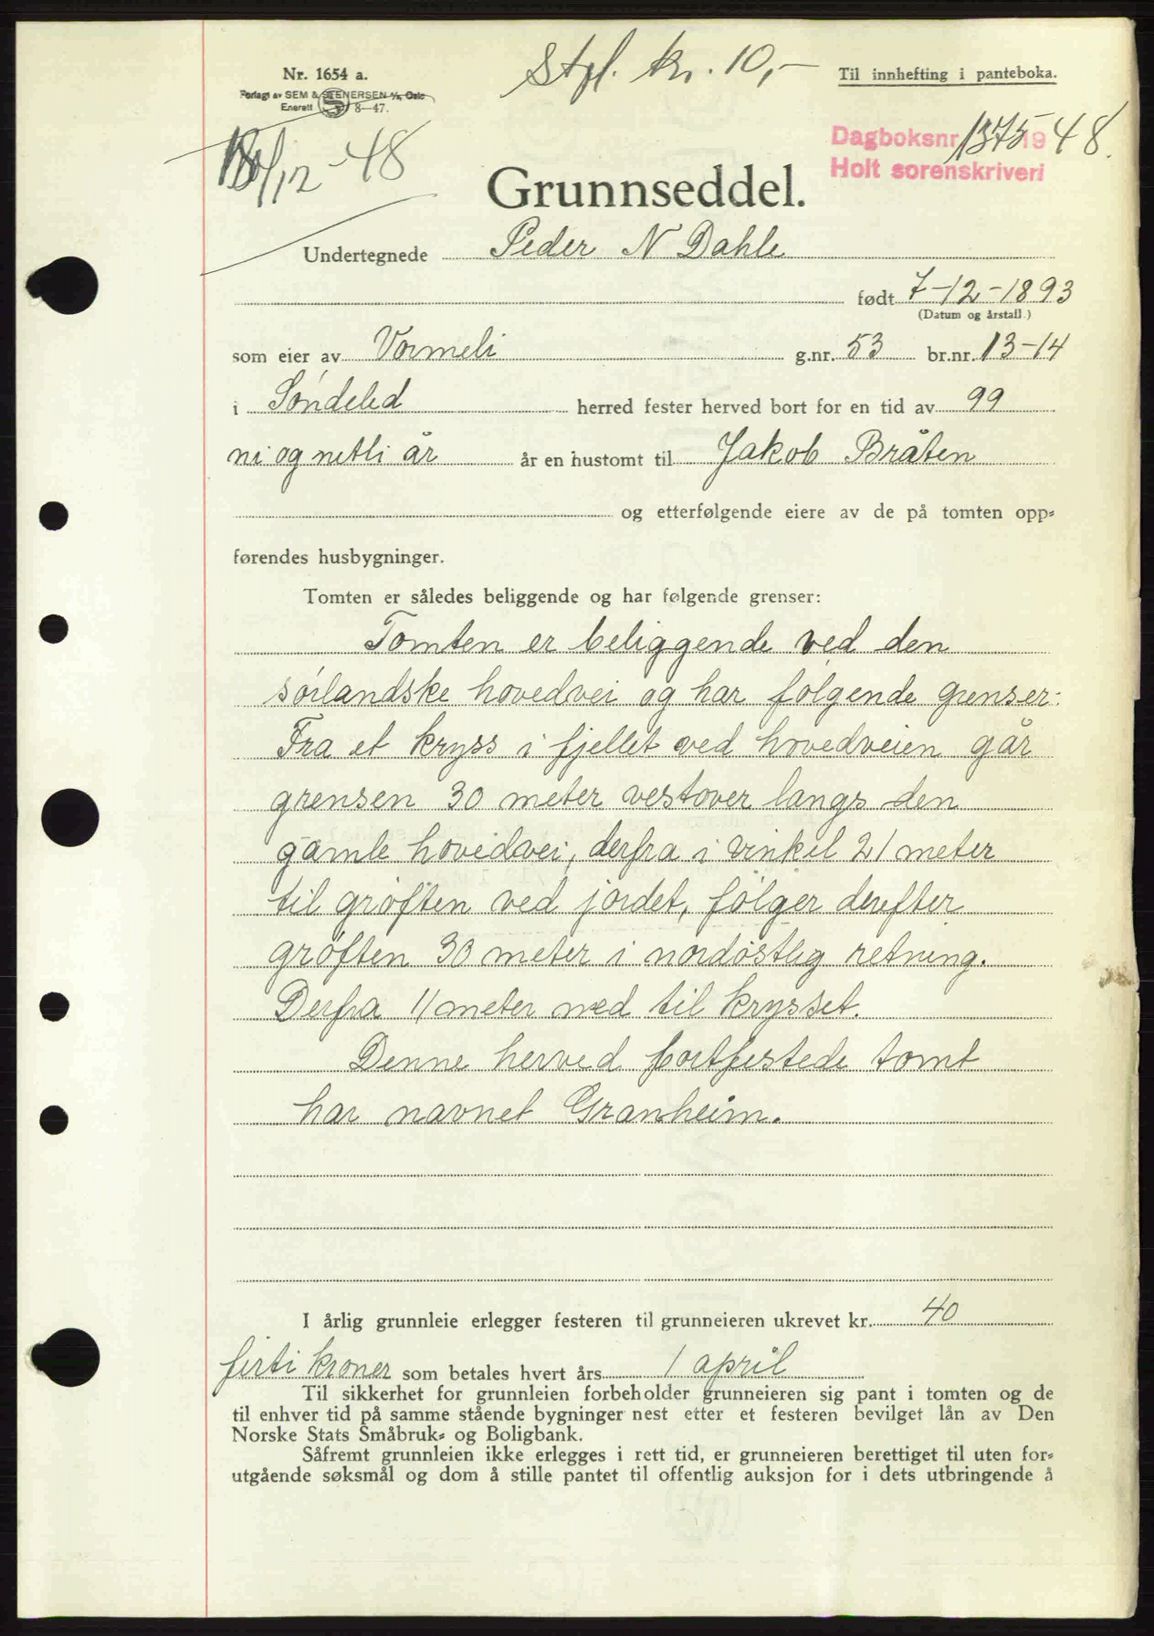 Stpl. kr. 10,-
Nr. 1654 a.
Til innhefting i panteboka.
Forlagt av SEM & STENERSEN A/S, Oslo
Enerett S 8—47.
Dagboksnr. 1375 1948.
Holt sorenskriveri
/12-48
Grunnseddel.
Undertegnede Peder N Dahle
født 7-12-1893
(Datum og årstall.)
som eier av Vormeli g.nr. 53 br.nr. 13-14
i Søndeled herred fester herved bort for en tid av 99
ni og nitti år år en hustomt til Jakob Bråten
og etterfølgende eiere av de på tomten opp=
førendes husbygninger.
Tomten er således beliggende og har følgende grenser:
Tomten er beliggende ved den
sørlandske hovedvei og har følgende grenser:
Fra et kryss i fjellet ved hovedveien går
grensen 30 meter vestover langs den
gamle hovedvei, derfra i vinkel 21 meter
til grøften ved jordet, følger derefter
grøften 30 meter i nordøstlig retning.
Derfra 11 meter ned til krysset.
Denne herved bortfestede tomt
har navnet Granheim.
I årlig grunnleie erlegger festeren til grunneieren ukrevet kr. 40
førti kroner som betales hvert års 1 april
Til sikkerhet for grunnleien forbeholder grunneieren sig pant i tomten og de
til enhver tid på samme stående bygninger nest etter et festeren bevilget lån av Den
Norske Stats Småbruk= og Boligbank.
Såfremt grunnleien ikke erlegges i rett tid, er grunneieren berettiget til uten for=
utgående søksmål og dom å stille pantet til offentlig auksjon for i dets utbringende å